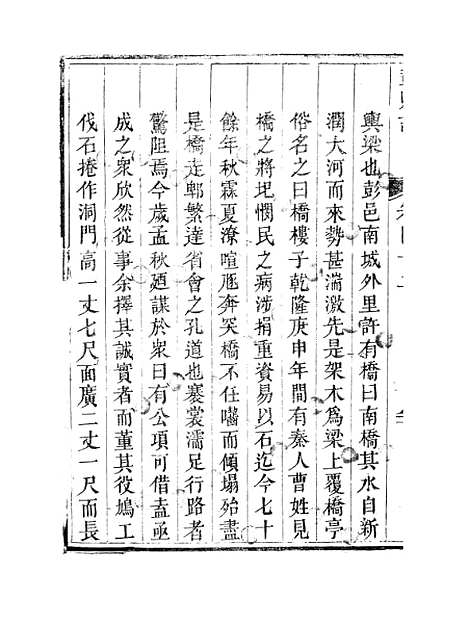 輿梁也彭邑南城外里許有橋曰南橋其水自新
潤大河而來勢甚湍激先是架木為梁上覆橋亭
俗名之曰橋樓子乾隆庚申年間有秦人曹姓見
橋之將圯憫民之病涉捐重資易以石迄今七十
餘年秋霖夏潦喧豗奔突橋不任嚙而傾塌殆盡
是橋走郫繁達省會之孔道也褰裳濡足行路者
驚阻焉今歲孟秋廼謀於衆曰有公項可借盍亟
成之衆欣然從事余擇其誠實者而董其役鳩工
伐石捲作洞門高一丈七尺面廣二丈一尺而長